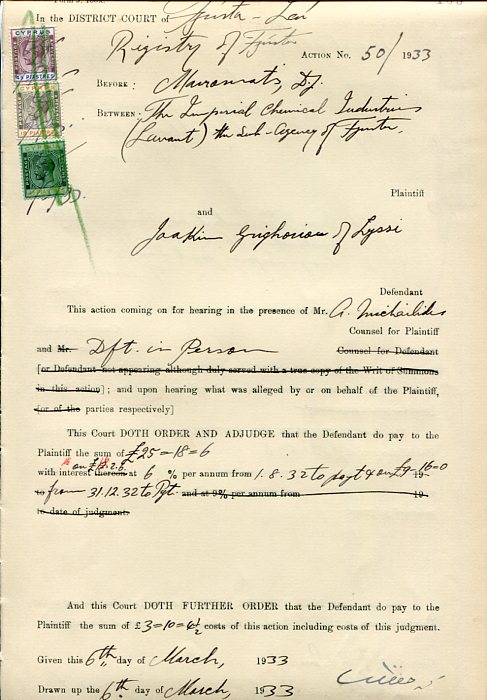 In the DISTRICT COURT of F'gusta - Law
Registry of F'gusta
ACTION No. 50/1933
BEFORE: Mavromatis, Dj.
BETWEEN: The Imperial Chemical Industries
(Levant) the Sub-Agency of F'gusta.
CYPRUS
4½ PIASTRES
CYPRUS
Plaintiff
and
Joakim Grighoriou of Lyssi
Defendant
This action coming on for hearing in the presence of Mr. G. Michailides
Counsel for Plaintiff
and Mr. Dft. in Person
Counsel for Defendant
[or Defendant not appearing although duly served with a true copy of the Writ of Summons
in this action]; and upon hearing what was alleged by or on behalf of the Plaintiff,
(or of the parties respectively]
This Court DOTH ORDER AND ADJUDGE that the Defendant do pay to the
Plaintiff the sum of £25=18=6
with interest thereon at 6 % per annum from 1.8.32 to payt & on £9-16=0 19
to from 31.12.32 to Pyt. and at 9% per annum from 19
to date of judgment.
And this Court DOTH FURTHER ORDER that the Defendant do pay to the
Plaintiff the sum of £3=10=6½ costs of this action including costs of this judgment.
Given this 6th day of March, 1933
Drawn up the 6th day of March, 1933